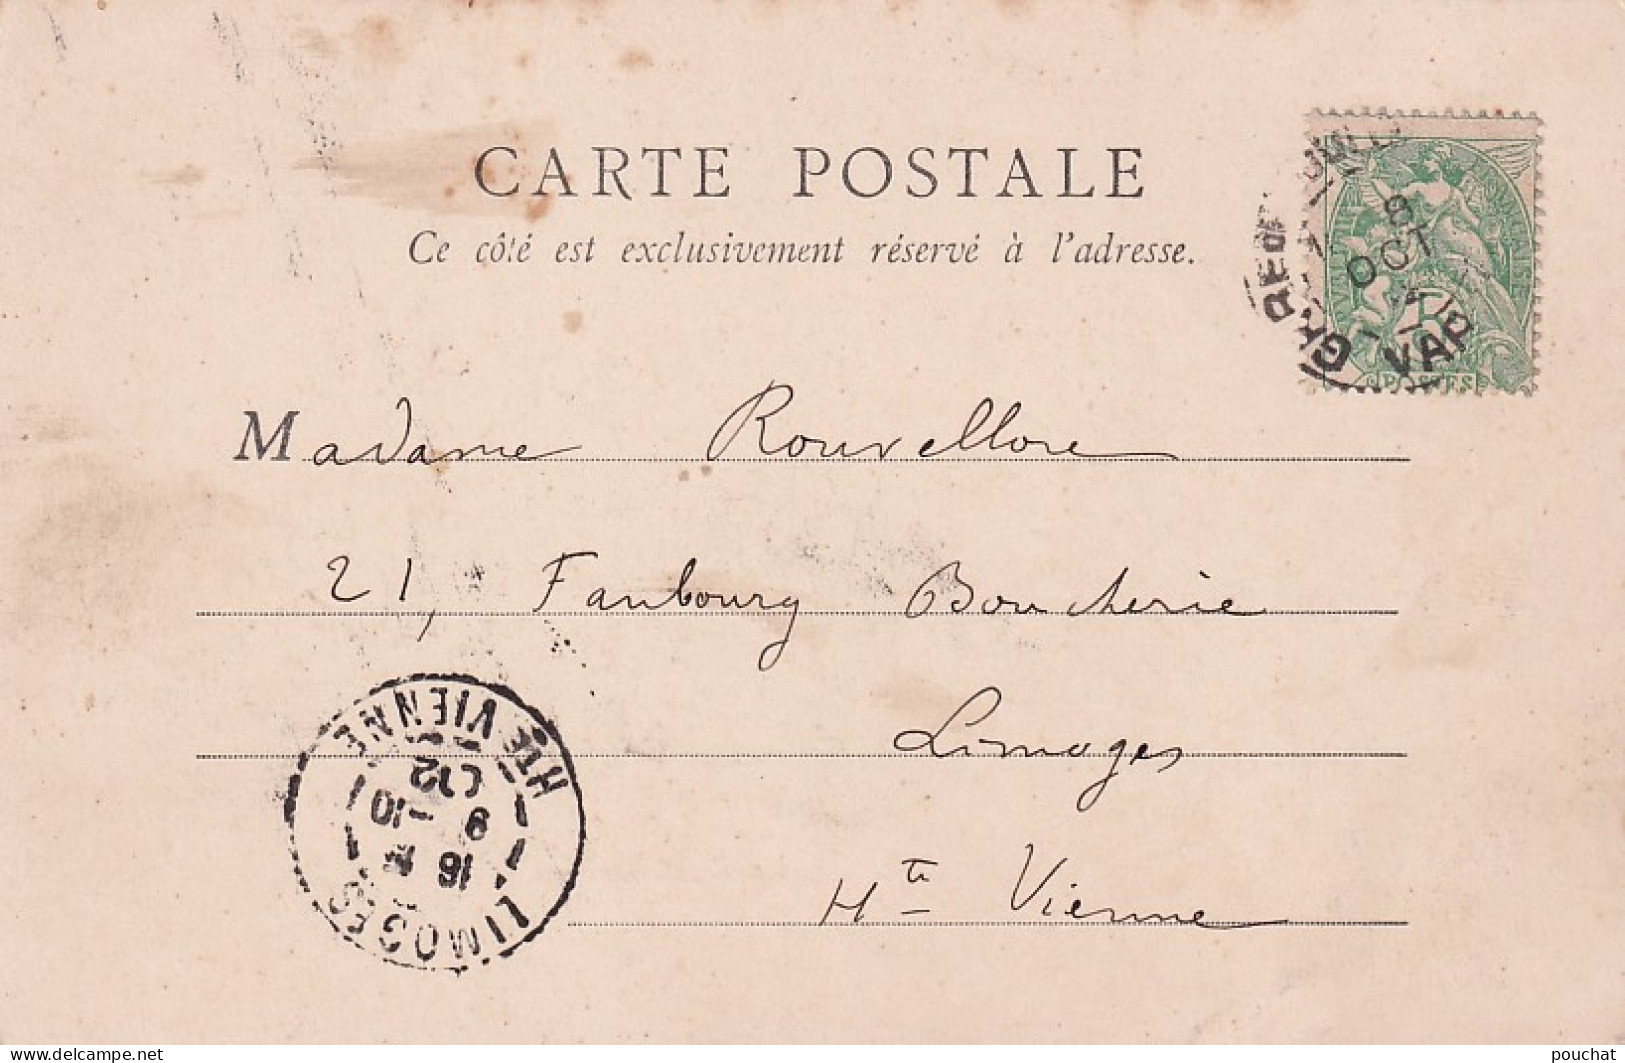 CARTE POSTALE
Ce côté est exclusivement réservé à l'adresse.
8
OCT
VAR
POSTES
Madame Rouvellore
21, Faubourg Boucherie
Limoges
Hte Vienne
LIMOGES
16
9 -10
02
HTE VIENNE
pouchat